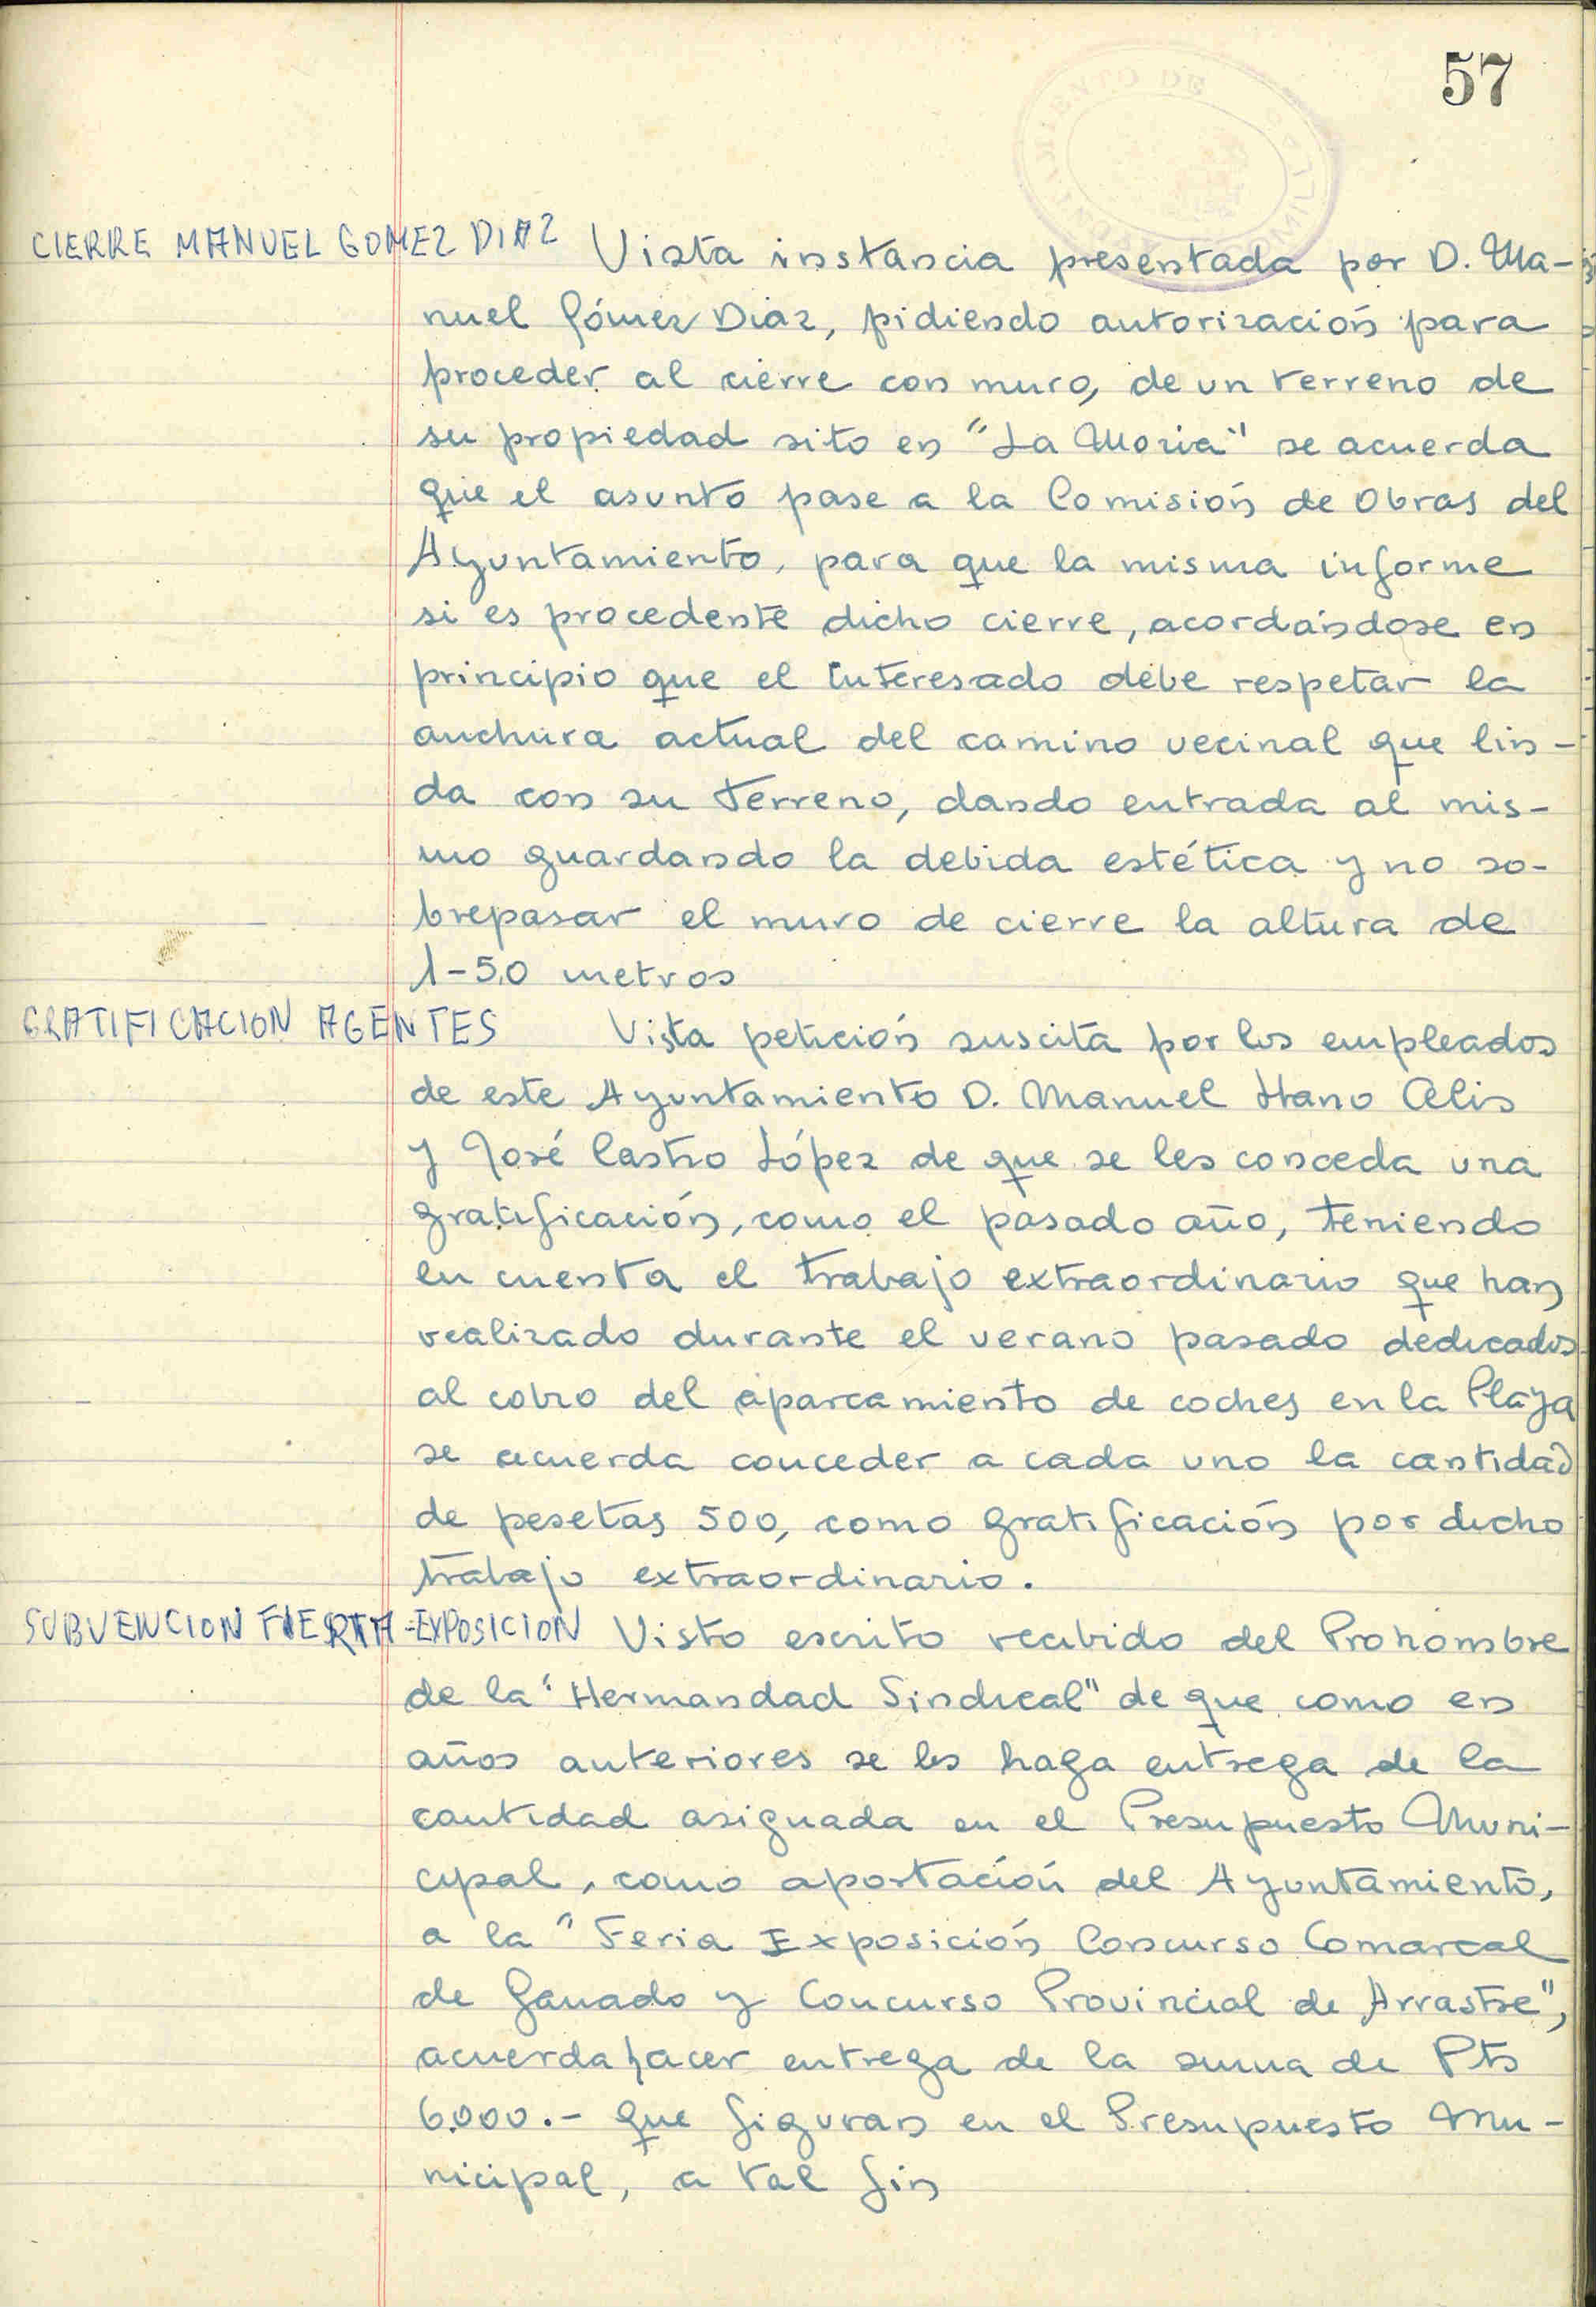 57
CIERRE MANUEL GOMEZ DIAZ Vista instancia presentada por D. Ma-
nuel Gómez Diaz, pidiendo autorización para
proceder al cierre con muro, de un terreno de
su propiedad sito en "La Moria" se acuerda
que el asunto pase a la Comisión de Obras del
Ayuntamiento, para que la misma informe
si es procedente dicho cierre, acordándose en
principio que el interesado debe respetar la
anchura actual del camino vecinal que lin-
da con su terreno, dando entrada al mis-
mo guardando la debida estética y no so-
brepasar el muro de cierre la altura de
1-50 metros
GRATIFICACION AGENTES Vista petición suscita por los empleados
de este Ayuntamiento D. Manuel Hano Celis
y José Castro López de que se les conceda una
gratificación, como el pasado año, teniendo
en cuenta el trabajo extraordinario que han
realizado durante el verano pasado dedicados
al cobro del aparcamiento de coches en la Playa
se acuerda conceder a cada uno la cantidad
de pesetas 500, como gratificación por dicho
trabajo extraordinario.
SUBVENCION FIERIA-EXPOSICION Visto escrito recibido del Prohombre
de la "Hermandad Sindical" de que como en
años anteriores se les haga entrega de la
cantidad asignada en el Presupuesto Muni-
cipal, como aportación del Ayuntamiento,
a la "Feria Exposición Concurso Comarcal
de Ganado y Concurso Provincial de Arrastre",
acuerda hacer entrega de la suma de Pts
6.000.- que figuran en el Presupuesto Mu-
nicipal, a tal fin